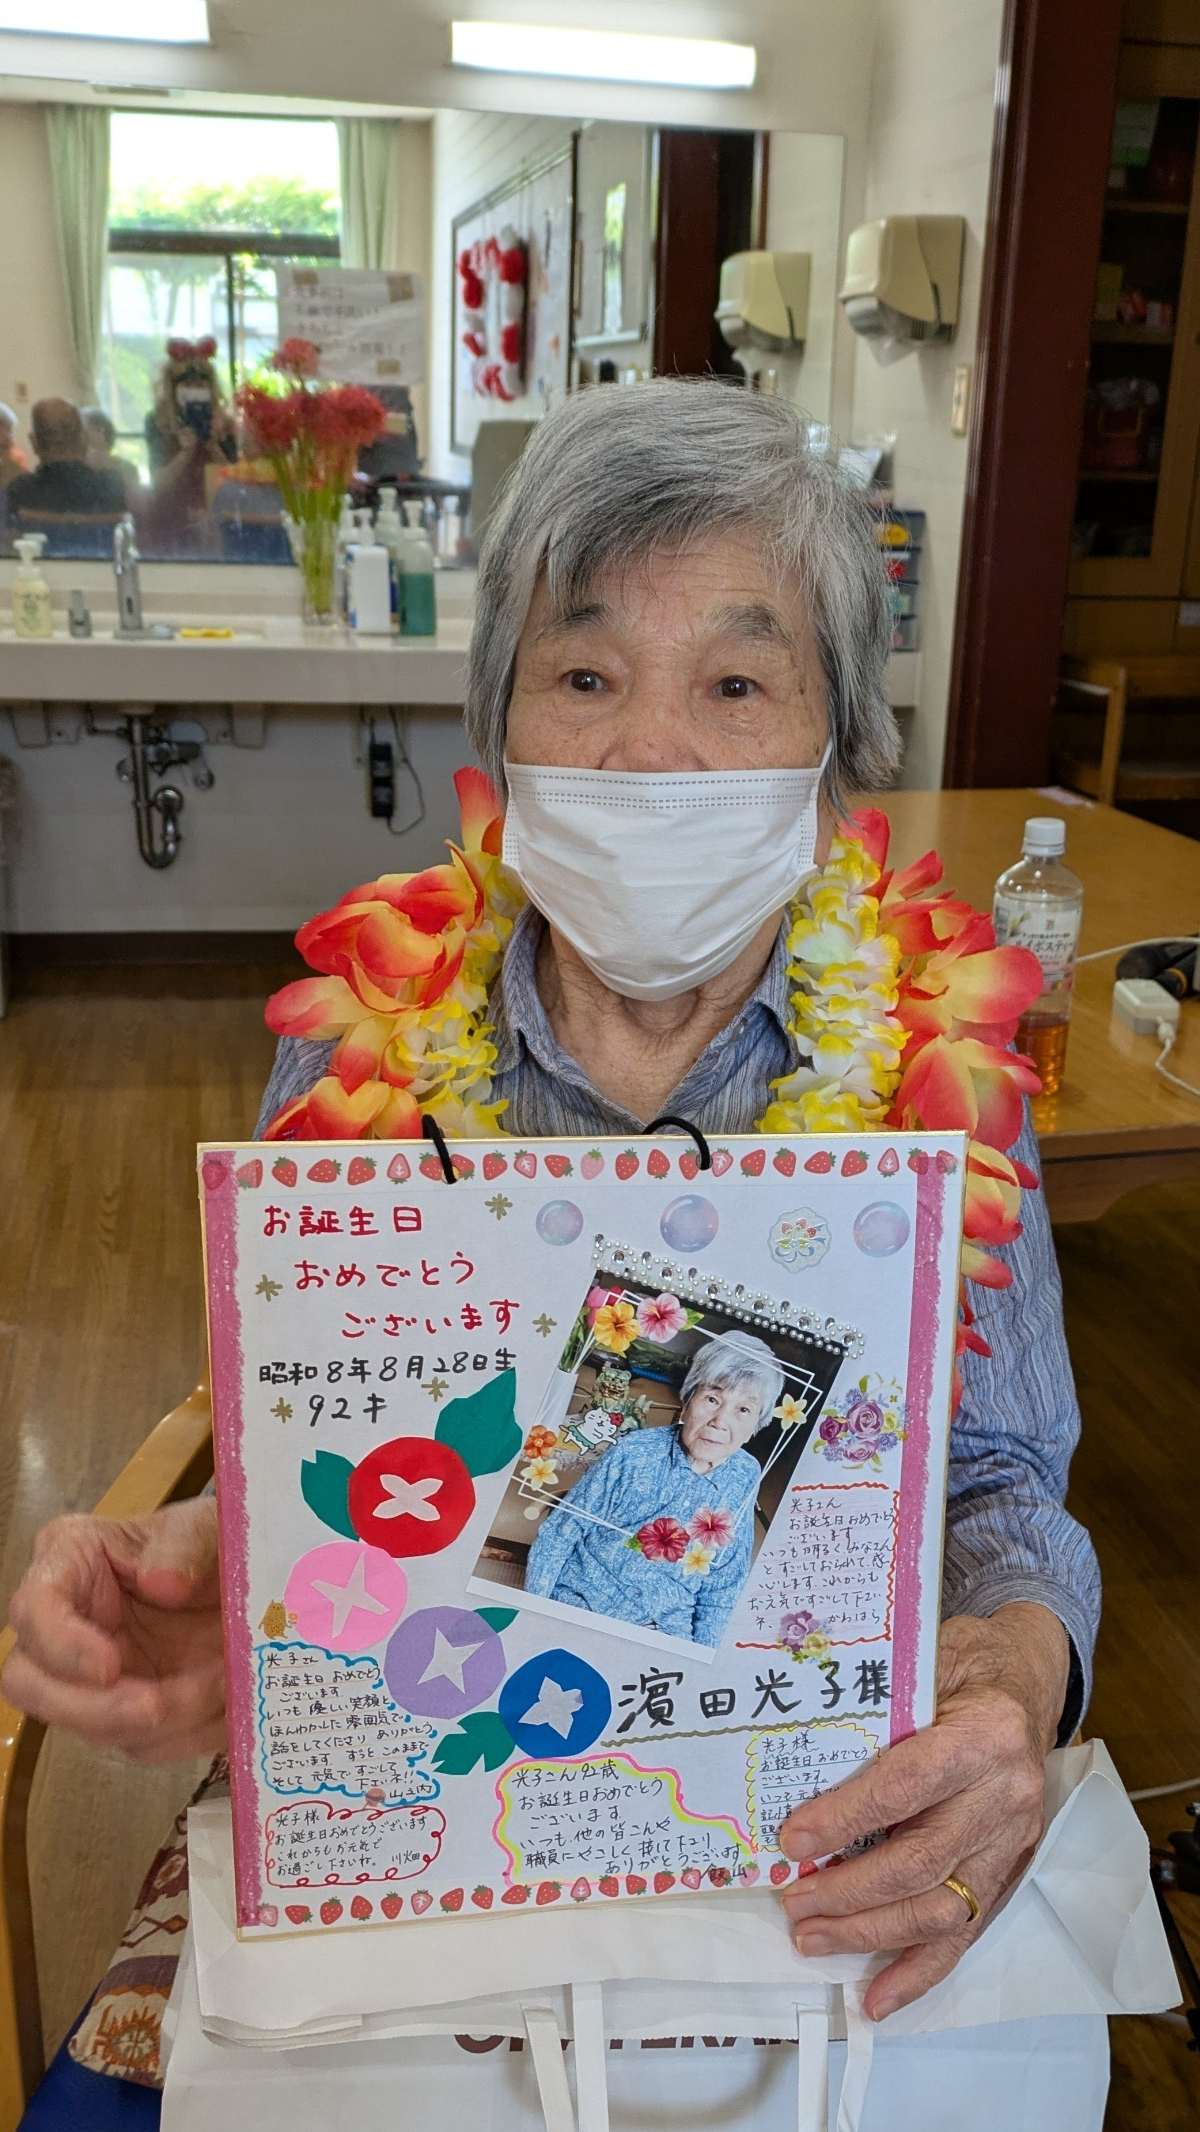 お誕生日
おめでとう
ございます
昭和8年8月28日生
92才
光子さん
お誕生日おめでとう
ございます
いつも明るくみなさん
とすごしておられて、感
心します。これからも
お元気ですごして下さい
ネ。 かわはら
濵田光子様
光子さん
お誕生日おめでとう
ございます。
いつも優しい笑顔と
ほんわかした雰囲気で
話をしてくださり ありがとう
ございます。 ずっと このままで
そして 元気で すごして
下さいネ!!
山之内
光子様
お誕生日おめでとうございます
これからもお元気で
お過ごし下さいね。 川畑
光子さん92歳
お誕生日おめでとう
ございます
いつも、他の皆さんや
職員にやさしく接して下さり
ありがとうございます
飯山
光子様
お誕生日おめでとう
ございます。
いつも元気で